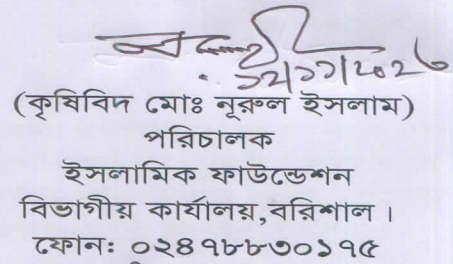 ১২/১১/২০২৬
(কৃষিবিদ মোঃ নূরুল ইসলাম)
পরিচালক
ইসলামিক ফাউন্ডেশন
বিভাগীয় কার্যালয়,বরিশাল ।
ফোন: ০২৪৭৮৮৩০১৭৫